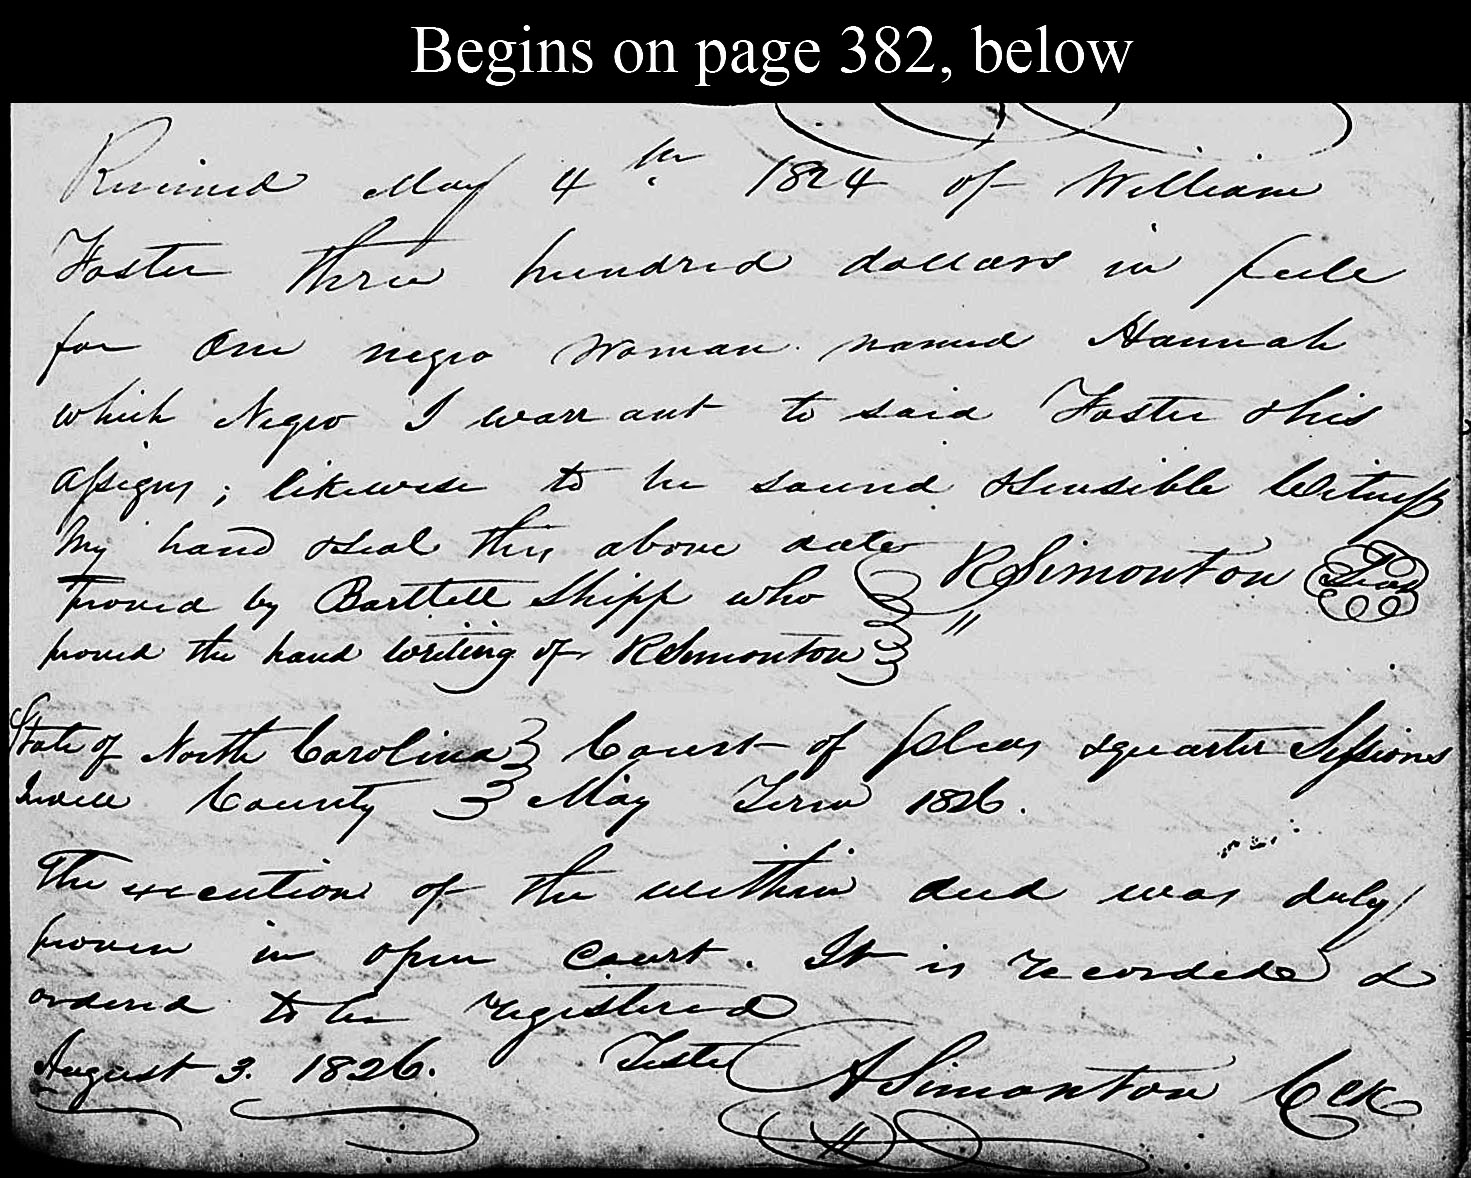 Begins on page 382, below
Received May 4th 1824 of William
Foster three hundred dollars in full
for One negro woman named Hannah
which Negro I warrant to said Foster & his
assigns ; likewise to be sound & sensible Witness
My hand & seal this above date R Simonton Seal
Proved by Bartlett Shipp who "
proved the hand writing of R Simonton
State of North Carolina Court of pleas & quarter Sessions
Iredell County May Term 1826.
The execution of the within deed was duly
proven in open Court. It is recorded &
ordered to be registered
August 3. 1826. Teste A Simonton Cck